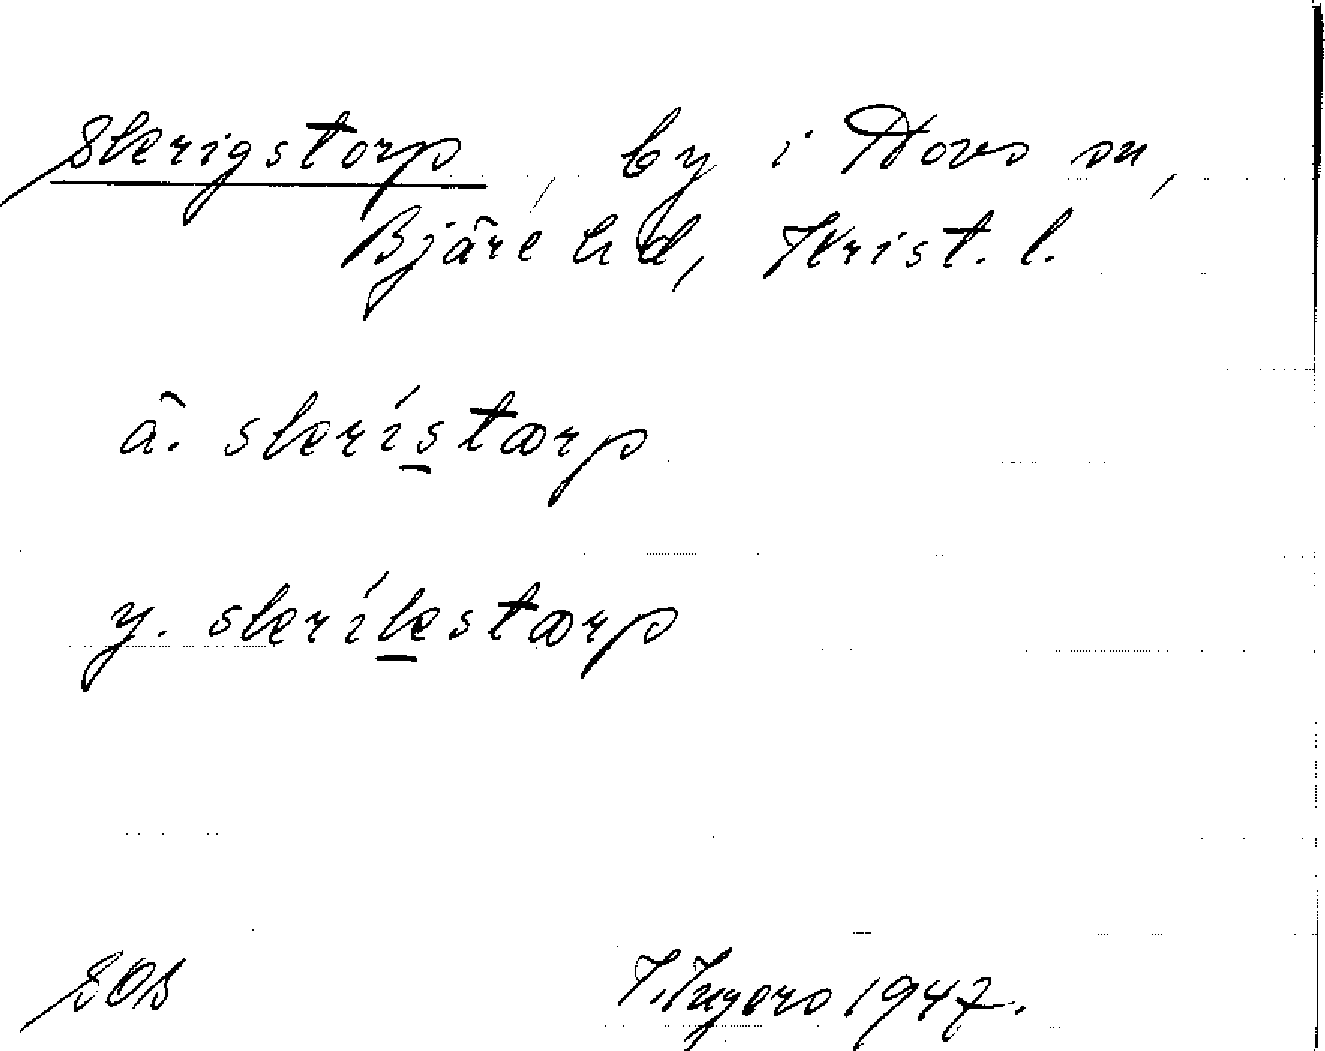 Skrigstorp, by i Hovs sn,
Bjäre hd, Krist. l.
ä. skrístorp
y. skríkstorp
SOB
I. Ingers 1947.